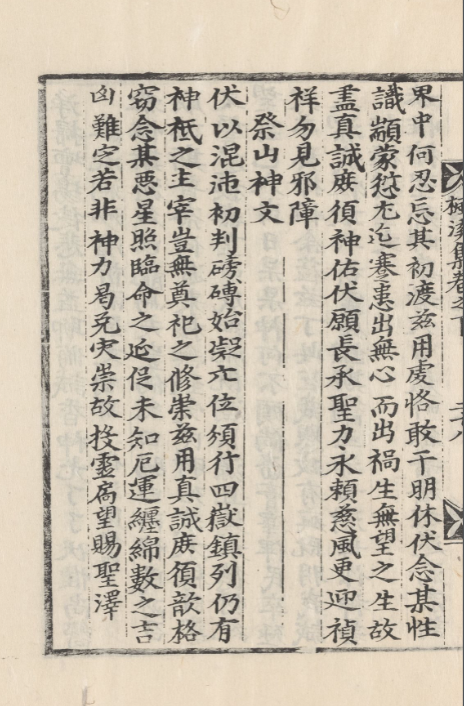 極渼集卷之下 二十八
界中何忍忘其初渡茲用虔恪敢干明休伏念某性
識顓蒙愆尤迄蹇患出無心而出禍生無望之生故
盡真誠庶湏神佑伏願長承聖力永賴慈風更迎禎
祥勿見邪障
祭山神文
伏以混沌初判磅礴始凝六位須行四嶽鎮列仍有
神祇之主宰豈無奠祀之修崇茲用真誠庶湏歆格
窃念某惡星照臨命之延促未知厄運纏綿數之吉
凶難定若非神力曷免灾祟故投靈扄望賜聖澤